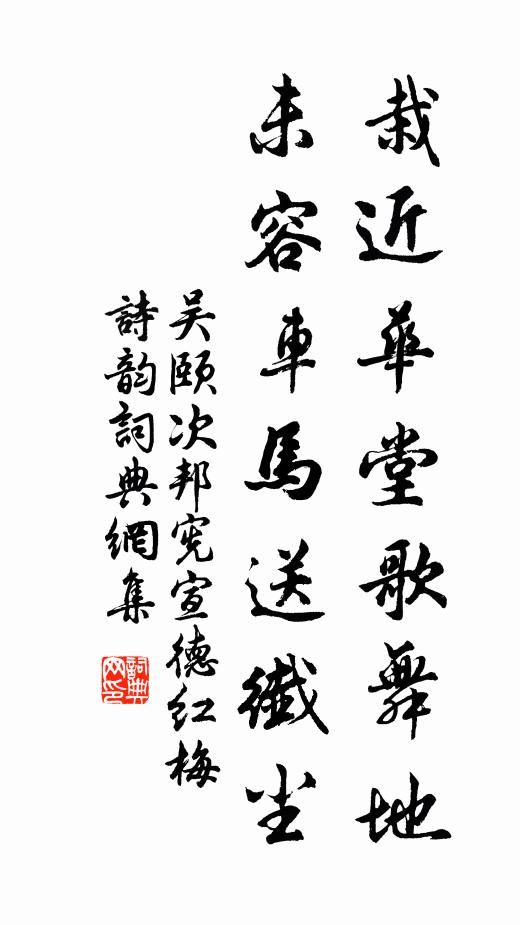 栽近華堂歌舞地
未容車馬送纖尘
吴頤次邦宪宣德红梅
詩韵詞典網集
詞典
网印